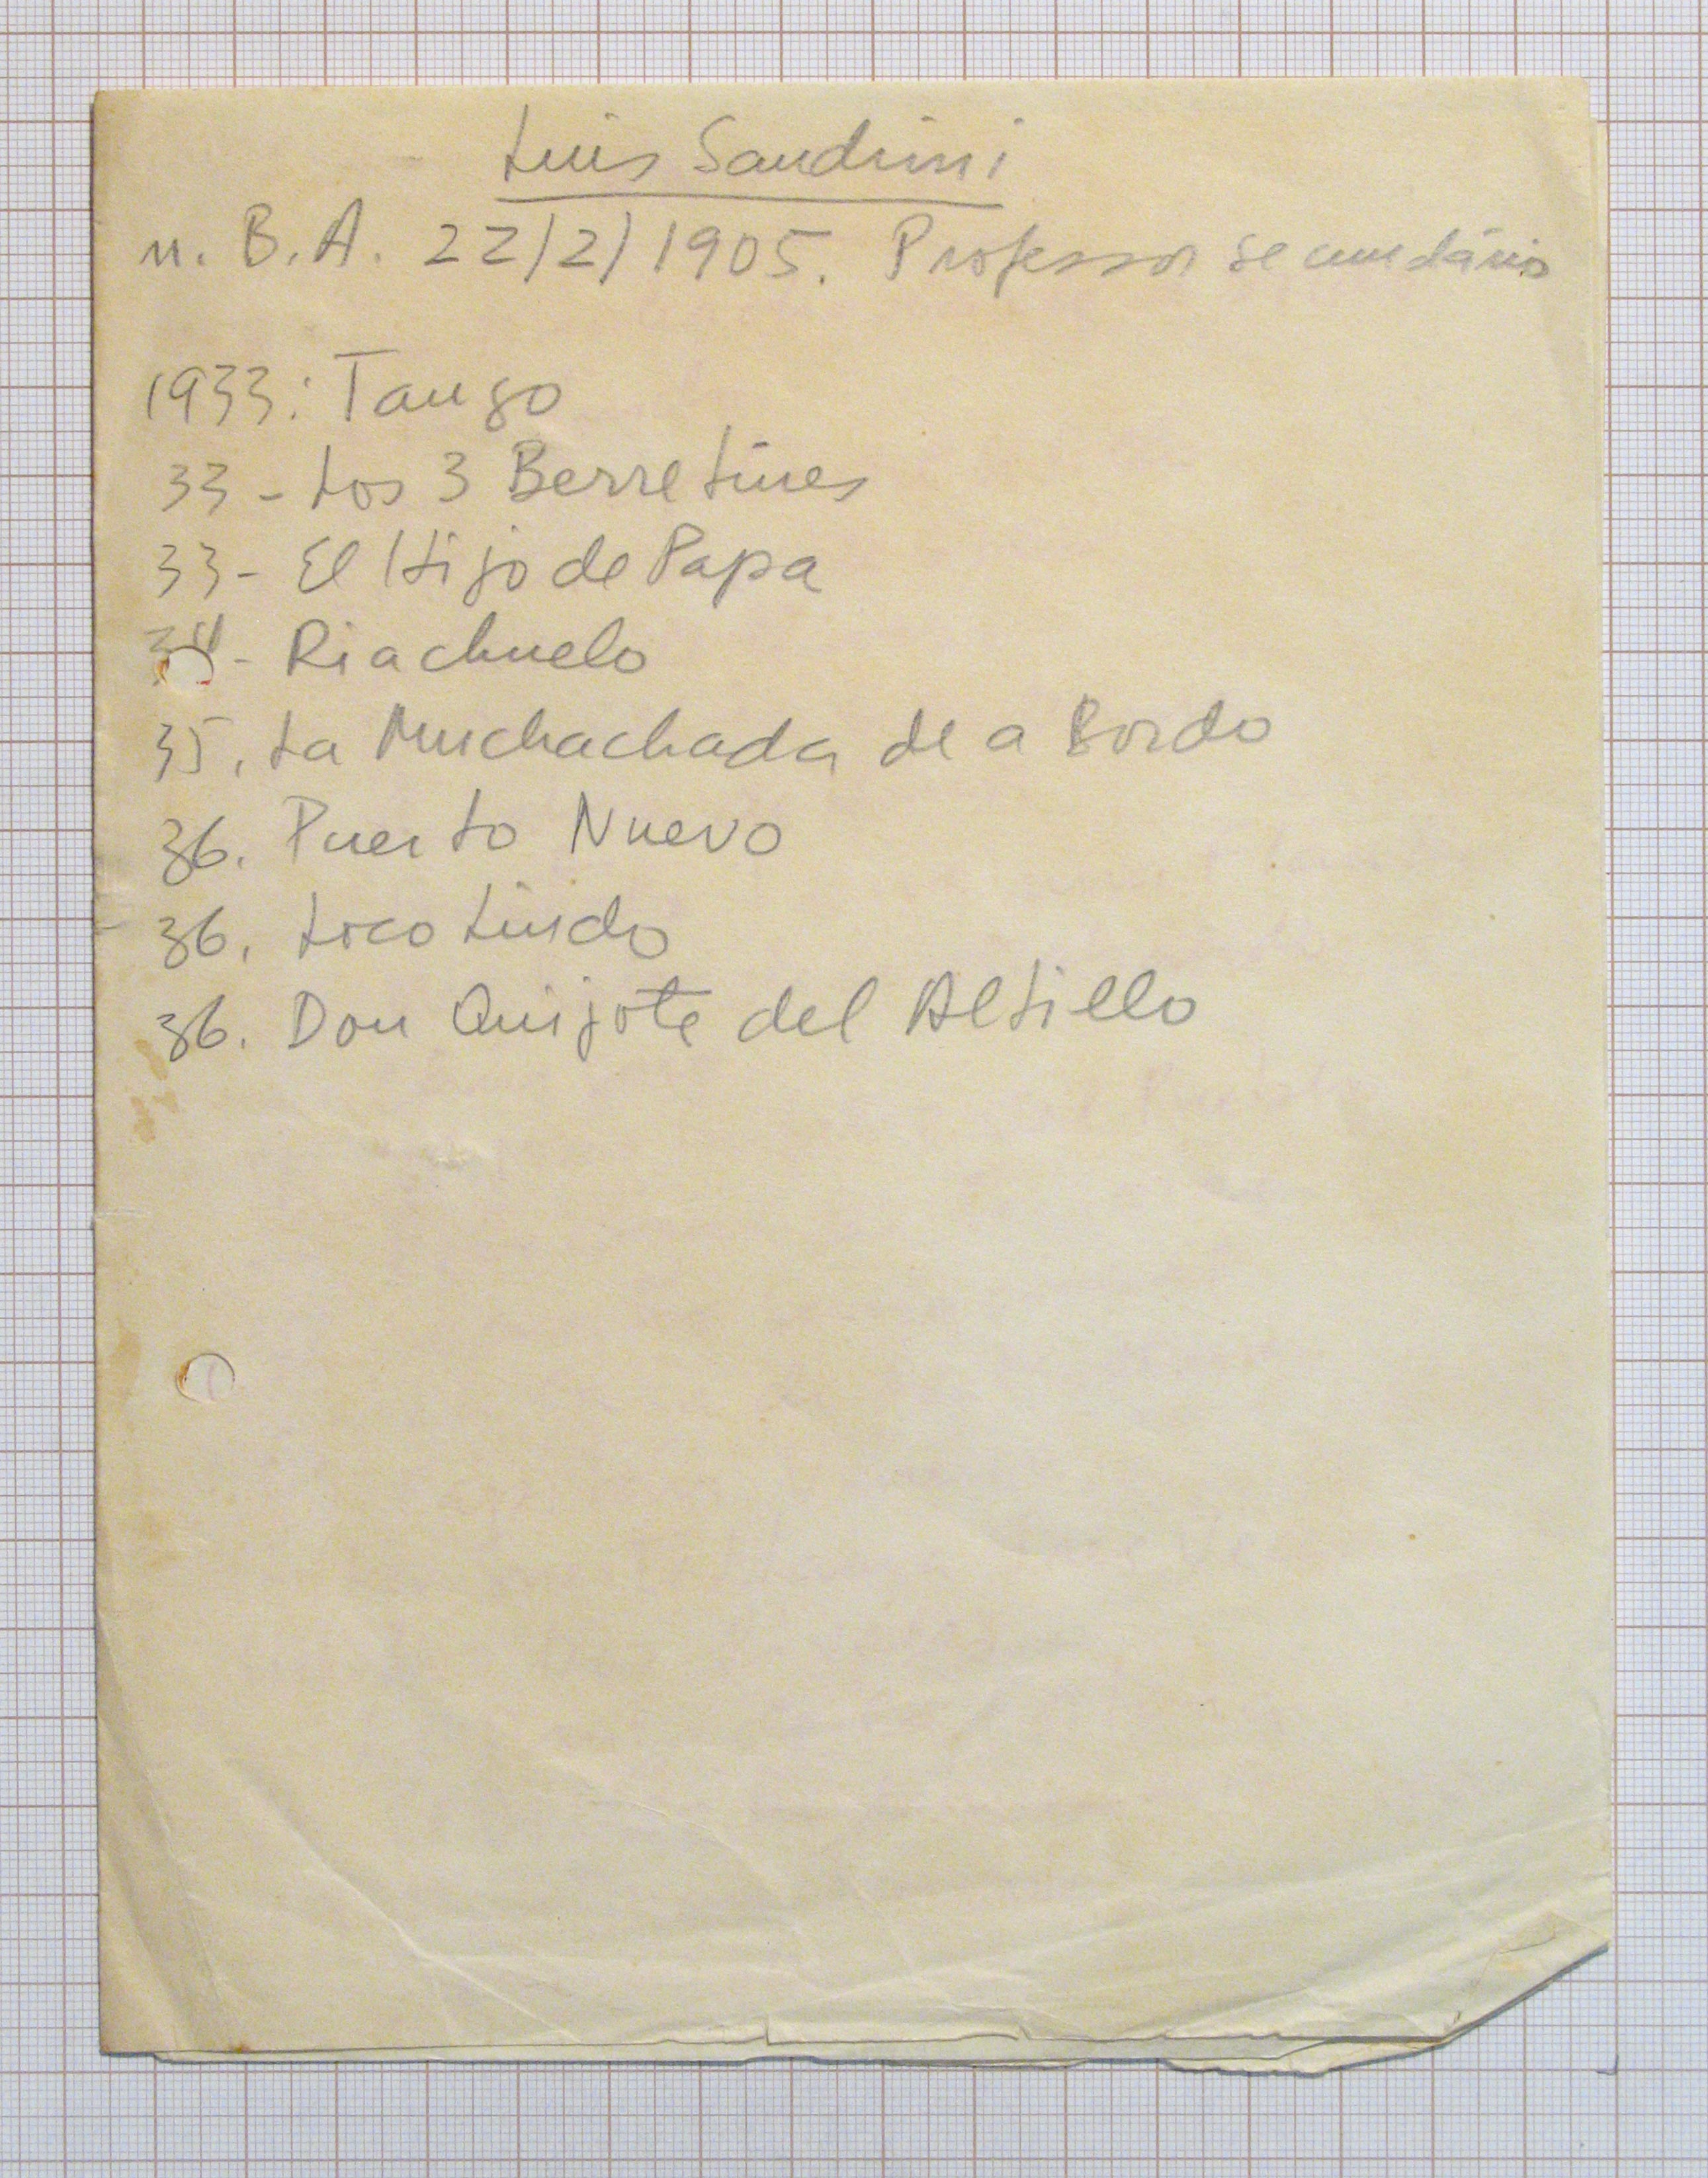 Luis Sandrini
n. B.A. 22/2/1905. Professor secundário
1933: Tango
33 - Los 3 Berretines
33 - El Hijo de Papa
34 - Riachuelo
35. La Muchachada de a Bordo
36. Puerto Nuevo
36. Loco Lindo
36. Don Quijote del Altillo